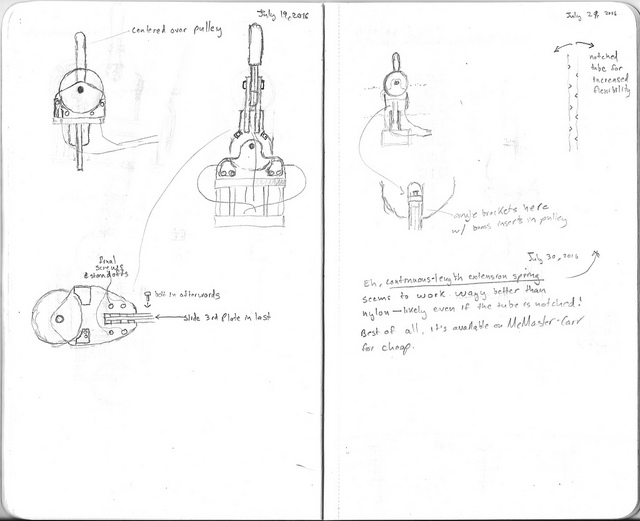 July 19, 2016
centered over pulley
final
screws
& standoffs
bolt in afterwards
slide 3rd plate in last
July 29, 2016
notched
tube for
increased
flexibility
angle brackets here
w/ brass inserts in pulley
July 30, 2016
Eh, continuous-length extension spring
seems to work. Wayy better than
nylon—likely even if the tube is notched!
Best of all, it's available on McMaster-Carr
for cheap.